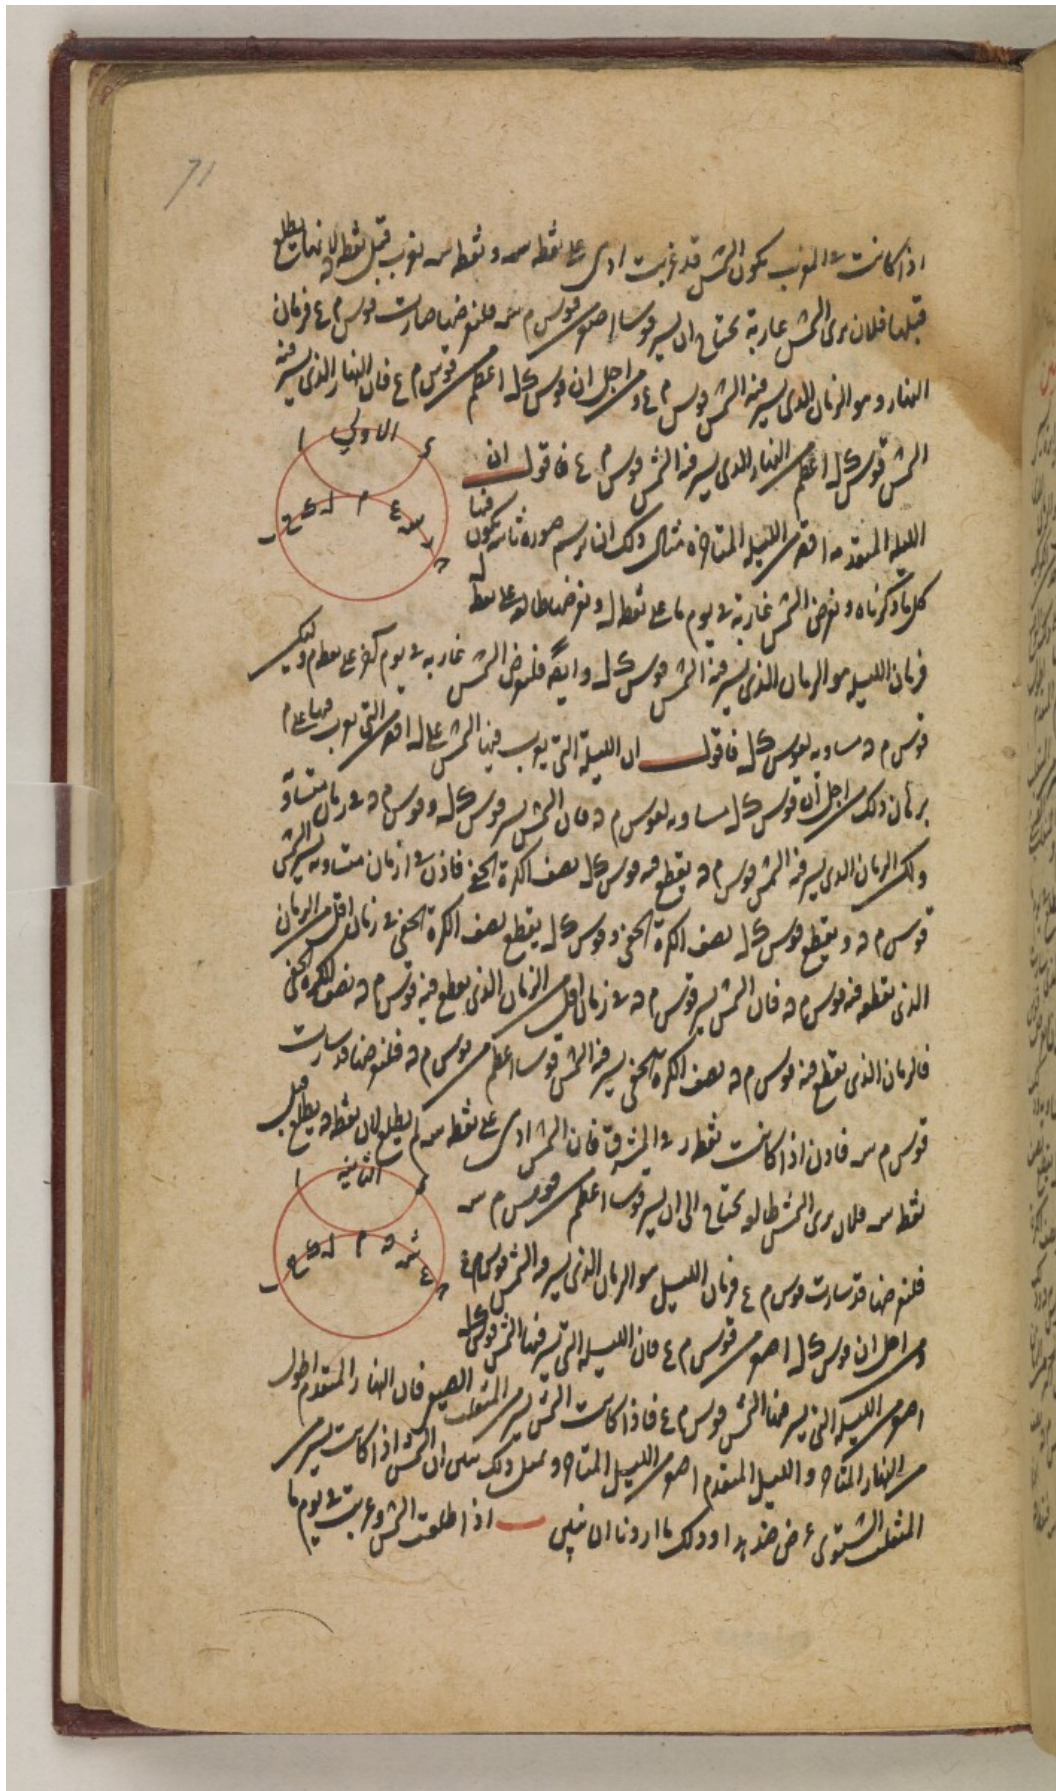 71
اذا كانت في المغرب يكون الشمس قد غربت اذن على نقطة س ونقطة س تغرب قبل نقطة لانها يطلع
قبلها فلان يرى الشمس غاربة يحتاج ان يسير قوسا اصغر من قوس م س فلنفرضها صارت قوس م ع فزمان
النهار وهو الزمان الذى يسير فيه الشمس قوس م ع ومن اجل ان قوس ك ل اعظم من قوس م ع فان النهار الذى يسير فيه
الاولى
الشمس قوس ك ل اعظم من النهار الذى يسير فيه الشمس قوس م ع فاقول ان
الليلة المتقدمة اقصر من الليلة المتاخرة مثال ذلك انا نرسم صورة ثانية يكون فيها
كل ما ذكرناه ونفرض الشمس غاربة في يوم ما على نقطة ل ونفرضها طالعة على نقطة ك
فزمان الليلة هو الزمان الذى يسير فيه الشمس قوس ك ل وايضا فلنفرض الشمس غاربة في يوم اخر على نقطة م وليكن
قوس م ه مساوية لقوس ك ل فاقول ان الليلة التى يغرب فيها الشمس على ل اقصر من التى يغرب فيها على م
برهان ذلك من اجل ان قوس ك ل مساوية لقوس م ه فان الشمس يسير قوس ك ل وقوس م ه في زمان متساو
ولكن الزمان الذى يسير فيه الشمس قوس م ه يقطع فيه قوس ك ل نصف الكرة الخفى فاذن في ازمان متساوية يسير الشمس
قوس م ه ويقطع قوس ك ل نصف الكرة الخفى وقوس ك ل يقطع نصف الكرة الخفى في زمان اقل من الزمان
الذى يقطع فيه قوس م ه فان الشمس يسير قوس م ه في زمان اقل من الزمان الذى يقطع فيه قوس م ه نصف الكرة الخفى
فالزمان الذى يقطع فيه قوس م ه نصف الكرة الخفى يسير فيه الشمس قوسا اعظم من قوس م ه فلنفرضها قد سارت
قوس م س فاذن اذا كانت نقطة ه في المشرق فان الشمس اذن على نقطة س لم يطلع لان نقطة ه يطلع قبل
الثانية
نقطة س فلان يرى الشمس طالعة يحتاج الى ان يسير قوسا اعظم من قوس م س
فلنفرضها قد سارت قوس م ع فزمان الليل هو الزمان الذى يسير فيه الشمس قوس م ع
ومن اجل ان قوس ك ل اصغر من قوس م ع فان الليلة التى يسير فيها الشمس قوس ك ل
اصغر من الليلة التى يسير فيها الشمس قوس م ع فاذا كانت الشمس يسير من المنقلب الصيفى فان النهار المتقدم اطول
من النهار المتاخر والليل المتقدم اصغر من الليل المتاخر وبمثل ذلك نبين ان الشمس اذا كانت يسير من
المنقلب الشتوى عرض ضد هذا وذلك ما اردنا ان نبين اذا طلعت الشمس وغربت في يوم ما